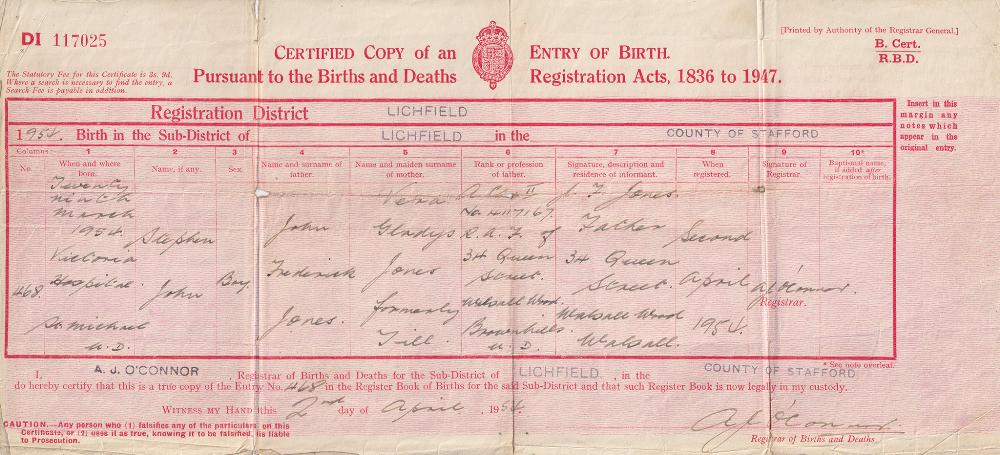 DI 117025
[Printed by Authority of the Registrar General.]
B. Cert.
R.B.D.
CERTIFIED COPY of an ENTRY OF BIRTH.
Pursuant to the Births and Deaths Registration Acts, 1836 to 1947.
The Statutory Fee for this Certificate is 3s. 9d.
Where a search is necessary to find the entry, a
Search Fee is payable in addition.
Insert in this
margin any
notes which
appear in the
original entry.
Registration District LICHFIELD
1954. Birth in the Sub-District of LICHFIELD in the COUNTY OF STAFFORD
Columns:— 1 2 3 4 5 6 7 8 9 10*
No. When and where born. Name, if any. Sex. Name and surname of father. Name and maiden surname of mother. Rank or profession of father. Signature, description and residence of informant. When registered. Signature of Registrar. Baptismal name, if added after registration of birth.
468.
Twenty
ninth
March
1954
Victoria
Hospital.
St. Michael
U.D.
Stephen
John
Boy.
John
Frederick
Jones.
Vera
Gladys
Jones
formerly
Till.
II
No. 4117167.
R.A.F. of
34 Queen
Street.
Walsall Wood.
Brownhills.
U.D.
J. F. Jones.
Father
34 Queen
Street.
Walsall Wood
Walsall.
Second
April
1954.
A J O'Connor.
Registrar.
* See note overleaf.
I, A. J. O'CONNOR, Registrar of Births and Deaths for the Sub-District of LICHFIELD, in the COUNTY OF STAFFORD
do hereby certify that this is a true copy of the Entry No. 468 in the Register Book of Births for the said Sub-District and that such Register Book is now legally in my custody.
WITNESS MY HAND this 2nd day of April, 1954.
CAUTION.—Any person who (1) falsifies any of the particulars on this
Certificate, or (2) uses it as true, knowing it to be falsified, is liable
to Prosecution.
A J O'Connor.
Registrar of Births and Deaths